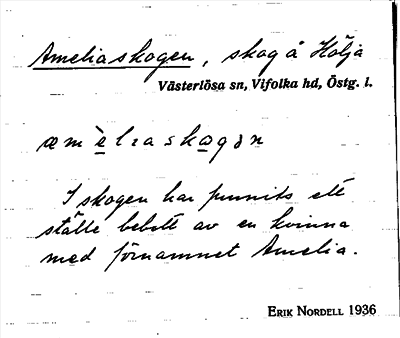 Ameliaskogen, skog å Hölja
Västerlösa sn, Vifolka hd, Östg. l.
æmèliaskagən
I skogen har funnits ett
ställe bebott av en kvinna
med förnamnet Amelia.
ERIK NORDELL 1936